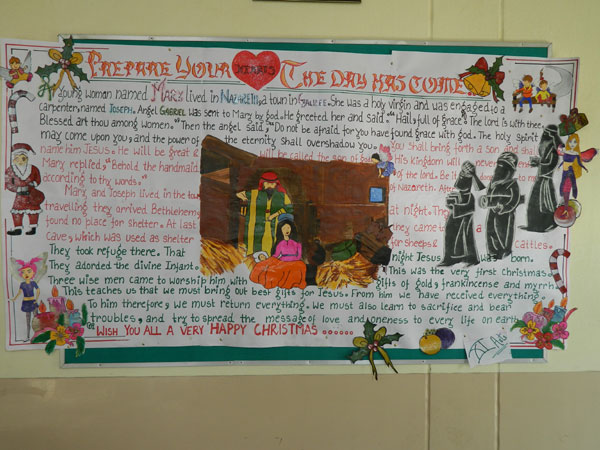 PREPARE YOUR HEARTS THE DAY HAS COME
A young woman named MARY lived in NAZARETH, a town in GALILEE. She was a holy virgin and was engaged to a
Carpenter, named JOSEPH. Angel GABRIEL was sent to Mary by god. He greeted her and said. "Hail, full of grace" The lord is with thee,
Blessed art thou among women." Then the angel said, "Do not be afraid for you have found grace with god. The holy Spirit
may come upon you, and the power of the eternity shall overshadow you. You shall bring forth a son and shall
name him JESUS. He will be great & will be called the son of god. His kingdom will never end
Mary replied, "Behold the handmaid of the lord. Be it done to me
according to thy words."
Mary, and Joseph lived in the town of Nazareth.
travelling they arrived Bethlehem at night. They
found no place for shelter. At last they came to a
cave, which was used as shelter for sheeps & Cattles.
They took refuge there. That night Jesus was born.
They adorded the divine Infant. This was the very first Christmas.
Three wise men came to worship him with gifts of gold, frankincense and myrrh.
This teaches us that we must bring out best gifts for Jesus. From him we have received everything.
To him therefore, we must return everything. We must also learn to sacrifice and bear
troubles, and try to spread the message of love and oneness to every life on earth.
WISH YOU ALL A VERY HAPPY CHRISTMAS ......